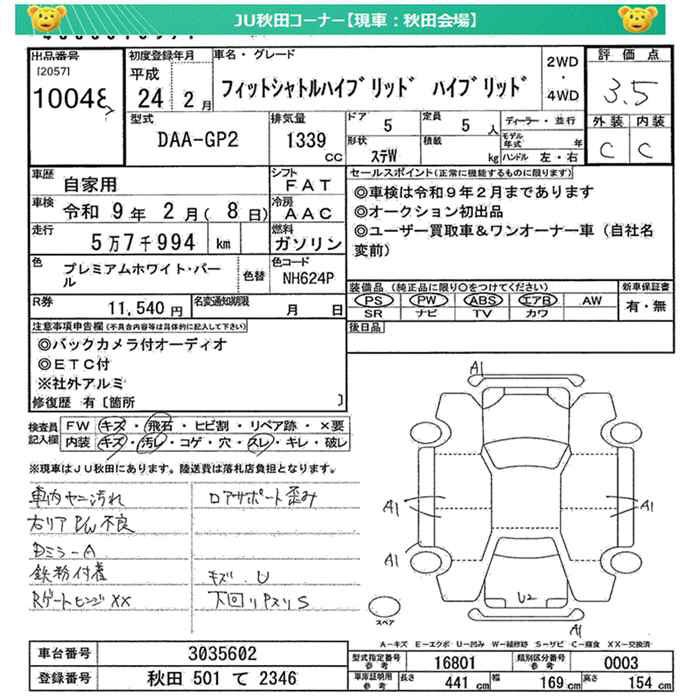 JU秋田コーナー【現車:秋田会場】
出品番号
[2057]
初度登録年月
平成
24 2 月
車名・グレード
フィットシャトルハイブリッド ハイブリッド
2WD
・
4WD
評価点
3.5
型式
DAA-GP2
排気量
1339
CC
ドア
5
定員
5 人
形状
ステW
積載
kg
ディーラー・並行
モデル年式 年
ハンドル 左・右
外装 内装
C C
車歴
自家用
シフト
FAT
車検
令和 9年 2月( 8日)
冷房
AAC
走行
5万7千994 km
燃料
ガソリン
色
プレミアムホワイト・パール
色替
色コード
NH624P
R券
11,540 円
名変通知期限
月 日
セールスポイント(正常に機能するものに限ります)
◎車検は令和9年2月まであります
◎オークション初出品
◎ユーザー買取車&ワンオーナー車(自社名
変前)
装備品(純正品に限り○をつけてください)
PS PW ABS エアB AW
SR ナビ TV カワ
新車保証書
有・無
後日品
注意事項申告欄(不具合内容等は具体的に記入して下さい)
◎バックカメラ付オーディオ
◎ETC付
※社外アルミ
修復歴 有〔箇所 〕
検査員
記入欄
FW キズ・飛石・ヒビ割・リペア跡・×要
内装 キズ・汚レ・コゲ・穴・スレ・キレ・破レ
※現車はJU秋田にあります。陸送費は落札店負担となります。
車内ヤニ汚れ
ロアサポート歪み
右リアPW不良
Dミラ-A
鉄粉付着
キズ.U
RゲートヒンジXX
下回りPスリS
A1
A1
A1
A1
U2
A1
スペア
A-キズ E-エクボ U-凹み W-補修跡 S-サビ C-腐食 XX-交換済
車台番号
3035602
登録番号
秋田 501 て 2346
型式指定番号
参考
16801
類別区分番号
参考
0003
車庫証明用
参考
長さ 441 cm
幅 169 cm
高さ 154 cm